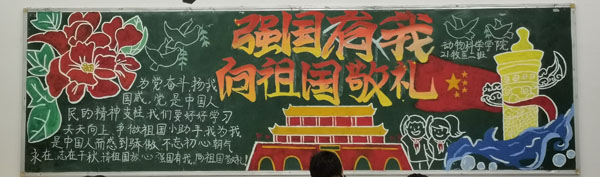 强国有我
向祖国敬礼
动物科学学院
21牧医二班
为党奋斗,扬我
国威,党是中国人
民的精神支柱,我们要好好学习
天天向上,争做祖国小助手,我为我
是中国人而感到骄傲,不忘初心,朝气
永在,志在千秋,请祖国放心,强国有我,向祖国敬礼!